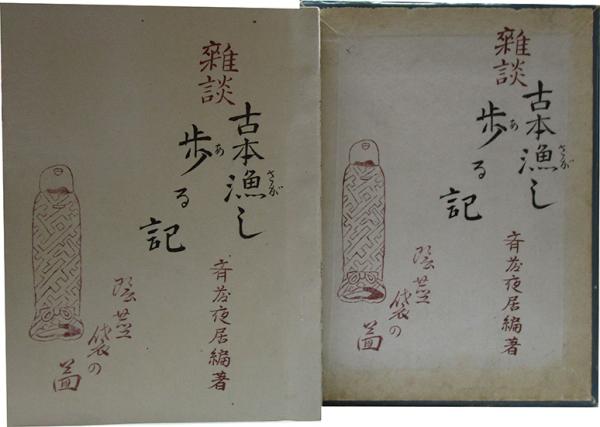 雜談
古本漁し
さが
歩る記
あ
斉藤夜居編著
陰莖袋の圖
雜談
古本漁し
さが
歩る記
あ
斉藤夜居編著
陰莖袋の圖